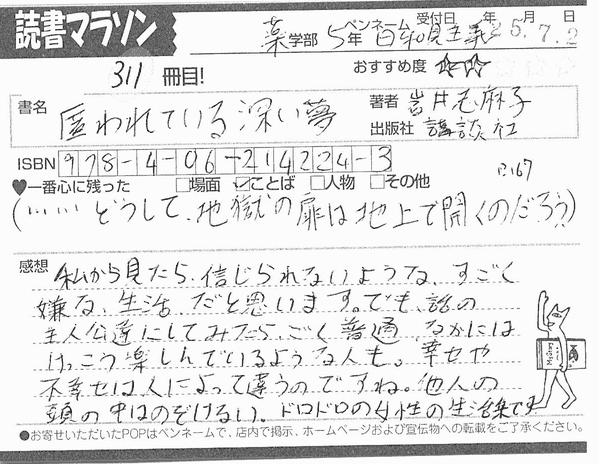 読書マラソン
薬学部 5年 ペンネーム 唯美主義 受付日 年 25.月 7.2日
311 冊目!
おすすめ度 ☆☆☆
書名 匿われている深い夢
著者 岩井志麻子
出版社 講談社
ISBN 978-4-06-214224-3
♥一番心に残った □場面 ☑ことば □人物 □その他
P.167
(…… どうして、地獄の扉は地上で開くのだろう)
感想 私から見たら、信じられないような、すごく
嫌な、生活、だと思います。でも、話の
主人公達にしてみたら、ごく普通、なかには
けっこう楽しんでいるような人も。幸せや
不幸せは人によって違うのですね。他人の
頭の中はのぞけない。ドロドロの女性の生活集です
●お寄せいただいたPOPはペンネームで、店内で掲示、ホームページおよび宣伝物への転載をご了承ください。